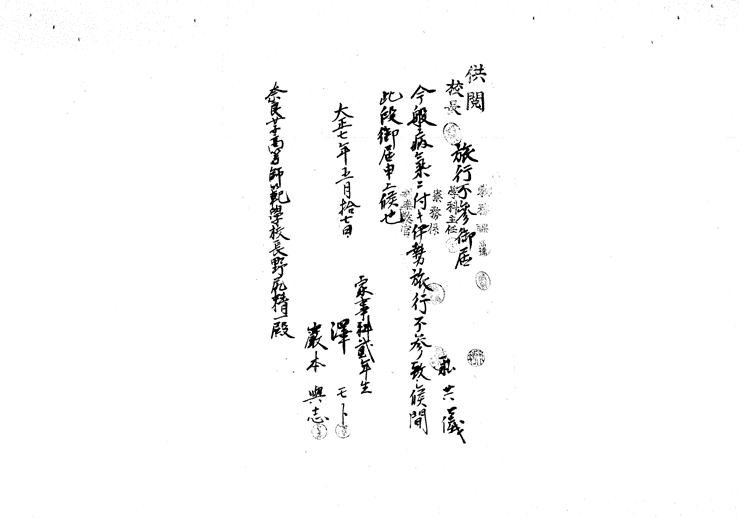 供閲
校長
旅行不参御届
教務課
学科主任
寮務係
私共儀
今般病気ニ付キ伊勢旅行不参致候間
此段御届申上候也
大正七年五月拾七日
家事科貳年生
澤 モト
巌本 與志
奈良女子高等師範學校長野尻精一殿